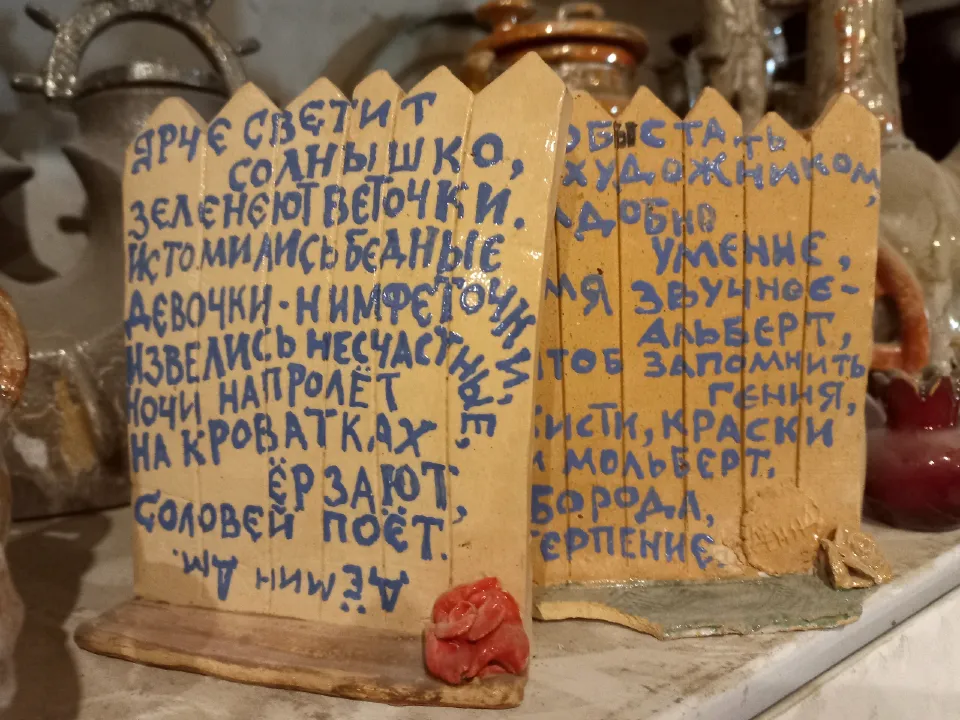 ЯРЧЕ СВЕТИТ
СОЛНЫШКО,
ЗЕЛЕНЕЮТ ВЕТОЧКИ.
ИСТОМИЛИСЬ БЕДНЫЕ
ДЕВОЧКИ-НИМФЕТОЧКИ,
ИЗВЕЛИСЬ НЕСЧАСТНЫЕ,
НОЧИ НАПРОЛЁТ
НА КРОВАТКАХ
ЁРЗАЮТ,
СОЛОВЕЙ ПОЁТ.
ДЁМИН ДМ.
ОБЫ СТАТЬ
ХУДОЖНИКОМ,
АДОБНО
УМЕНИЕ,
МЯ ЗВУЧНОЕ-
АЛЬБЕРТ,
ЧТОБ ЗАПОМНИТЬ
ГЕНИЯ,
КИСТИ, КРАСКИ
И МОЛЬБЕРТ.
БОРОДА,
ТЕРПЕНИЕ.